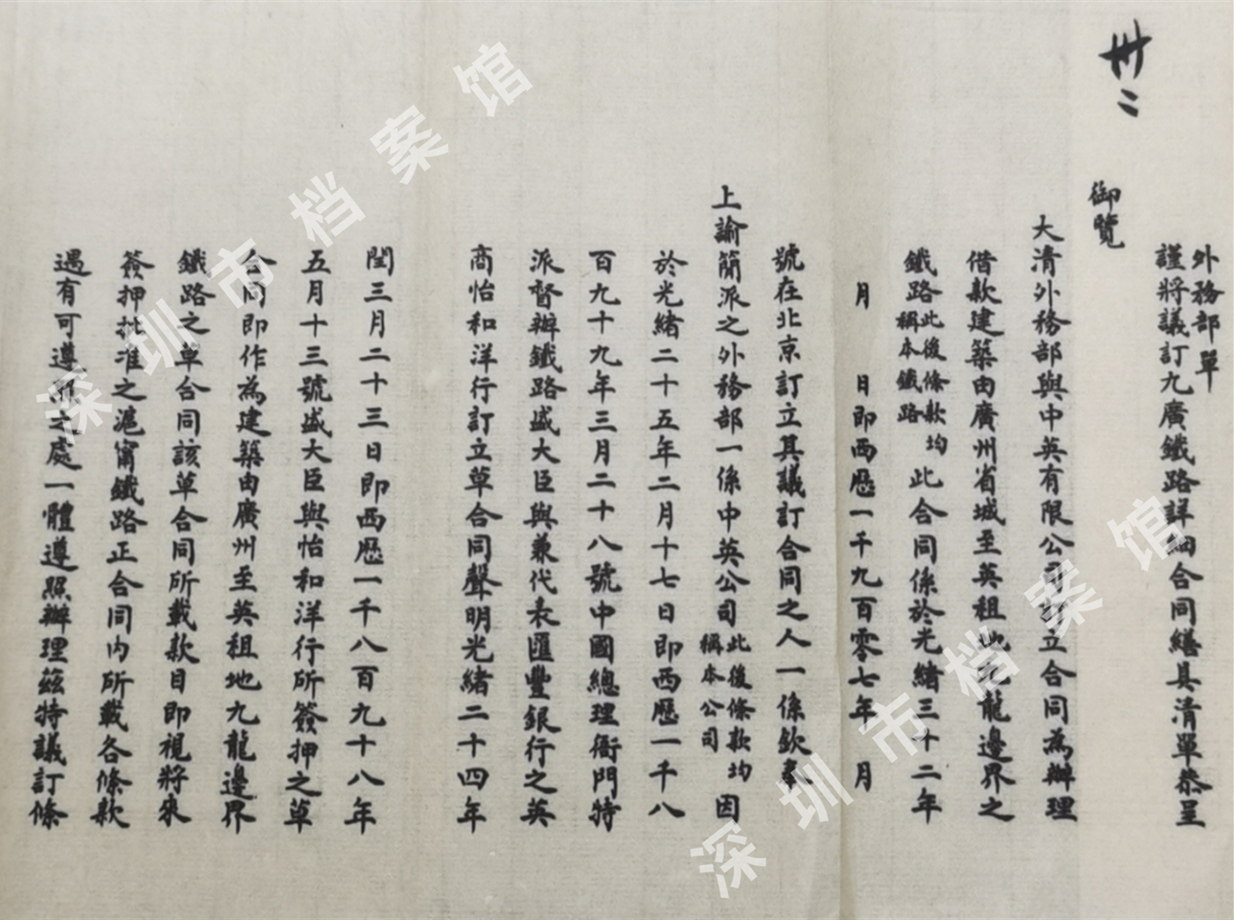 卅二
外務部單
謹將議訂九廣鐵路詳細合同繕具清單恭呈
御覽
大清外務部與中英有限公司訂立合同為辦理
借款建築由廣州省城至英租地九龍邊界之
鐵路此後條款均稱本鐵路此合同係於光緒三十二年
月　日即西曆一千九百零七年　月
號在北京訂立其議訂合同之人一係欽奉
上諭簡派之外務部一係中英公司此後條款均稱本公司因
於光緒二十五年二月十七日即西曆一千八
百九十九年三月二十八號中國總理衙門特
派督辦鐵路盛大臣與兼代表匯豐銀行之英
商怡和洋行訂立草合同聲明光緒二十四年
閏三月二十三日即西曆一千八百九十八年
五月十三號盛大臣與怡和洋行所簽押之草
合同即作為建築由廣州至英租地九龍邊界
鐵路之草合同該草合同所載款目即視將來
簽押批准之滬甯鐵路正合同內所載各條款
遇有可遵照之處一體遵照辦理茲特議訂條
深圳市档案馆
深圳市档案馆